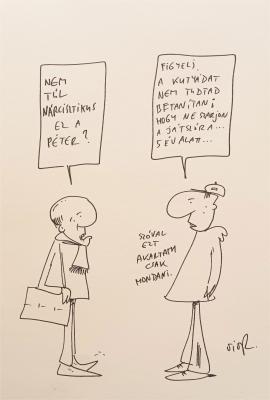 NEM
TÚL
NÁRCISZTIKUS
EZ A
PÉTER?
FIGYELJ.
A KUTYÁDAT
NEM TUDTAD
BETANÍTANI
HOGY NE SZARJON
A JÁTSZÓRA...
5 ÉV ALATT...
SZÓVAL
EZT
AKARTAM
CSAK
MONDANI.